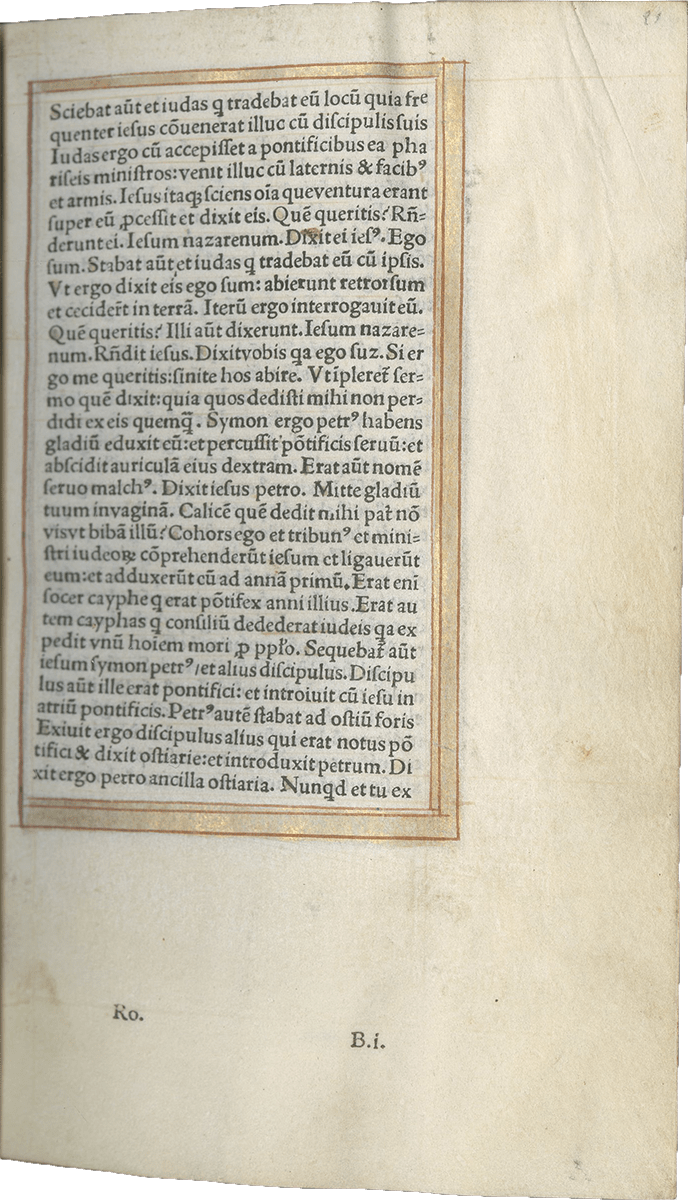 21
Sciebat aūt et iudas ꝗ tradebat eū locū quia fre
quenter iesus cōuenerat illuc cū discipulis suis
Iudas ergo cū accepisset a pontificibus ea pha
riseis ministros: venit illuc cū laternis & facibꝰ
et armis. Iesus itaqꝫ sciens oīa que ventura erant
super eū ꝓcessit et dixit eis. Quē queritis? Rn̄⸗
derunt ei. Iesum nazarenum. Dixit ei iesꝰ. Ego
sum. Stabat aūt et iudas ꝗ tradebat eū cū ipsis.
Vt ergo dixit eis ego sum: abierunt retrorsum
et cecider̄t in terrā. Iterū ergo interrogauit eū.
Quē queritis? Illi aūt dixerunt. Iesum nazare⸗
num. Rn̄dit iesus. Dixi vobis ꝗa ego suz. Si er
go me queritis: sinite hos abire. Vt īpleret̄ ser⸗
mo quē dixit: quia quos dedisti mihi non per⸗
didi ex eis quemꝗ̄. Symon ergo petrꝰ habens
gladiū eduxit eū: et percussit pōtificis seruū: et
abscidit auriculā eius dextram. Erat aūt nomē
seruo malchꝰ. Dixit iesus petro. Mitte gladiū
tuum in vaginā. Calicē quē dedit mihi pat̄ nō
vis vt bibā illū? Cohors ego et tribunꝰ et mini⸗
stri iudeoꝝ cōprehenderūt iesum et ligauerūt
eum: et adduxerūt eū ad annā primū. Erat enī
socer cayphe ꝗ erat pōtifex anni illius. Erat au
tem cayphas ꝗ consiliū dedederat iudeis ꝗa ex
pedit vnū hoīem mori ꝓ ppl̄o. Sequebat̄ aūt
iesum symon petrꝰ / et alius discipulus. Discipu
lus aūt ille erat pontifici: et introiuit cū iesu in
atriū pontificis. Petrꝰ autē stabat ad ostiū foris
Exiuit ergo discipulus alius qui erat notus pō
tifici & dixit ostiarie: et introduxit petrum. Di
xit ergo petro ancilla ostiaria. Nunꝗd et tu ex
Ro.
B.i.